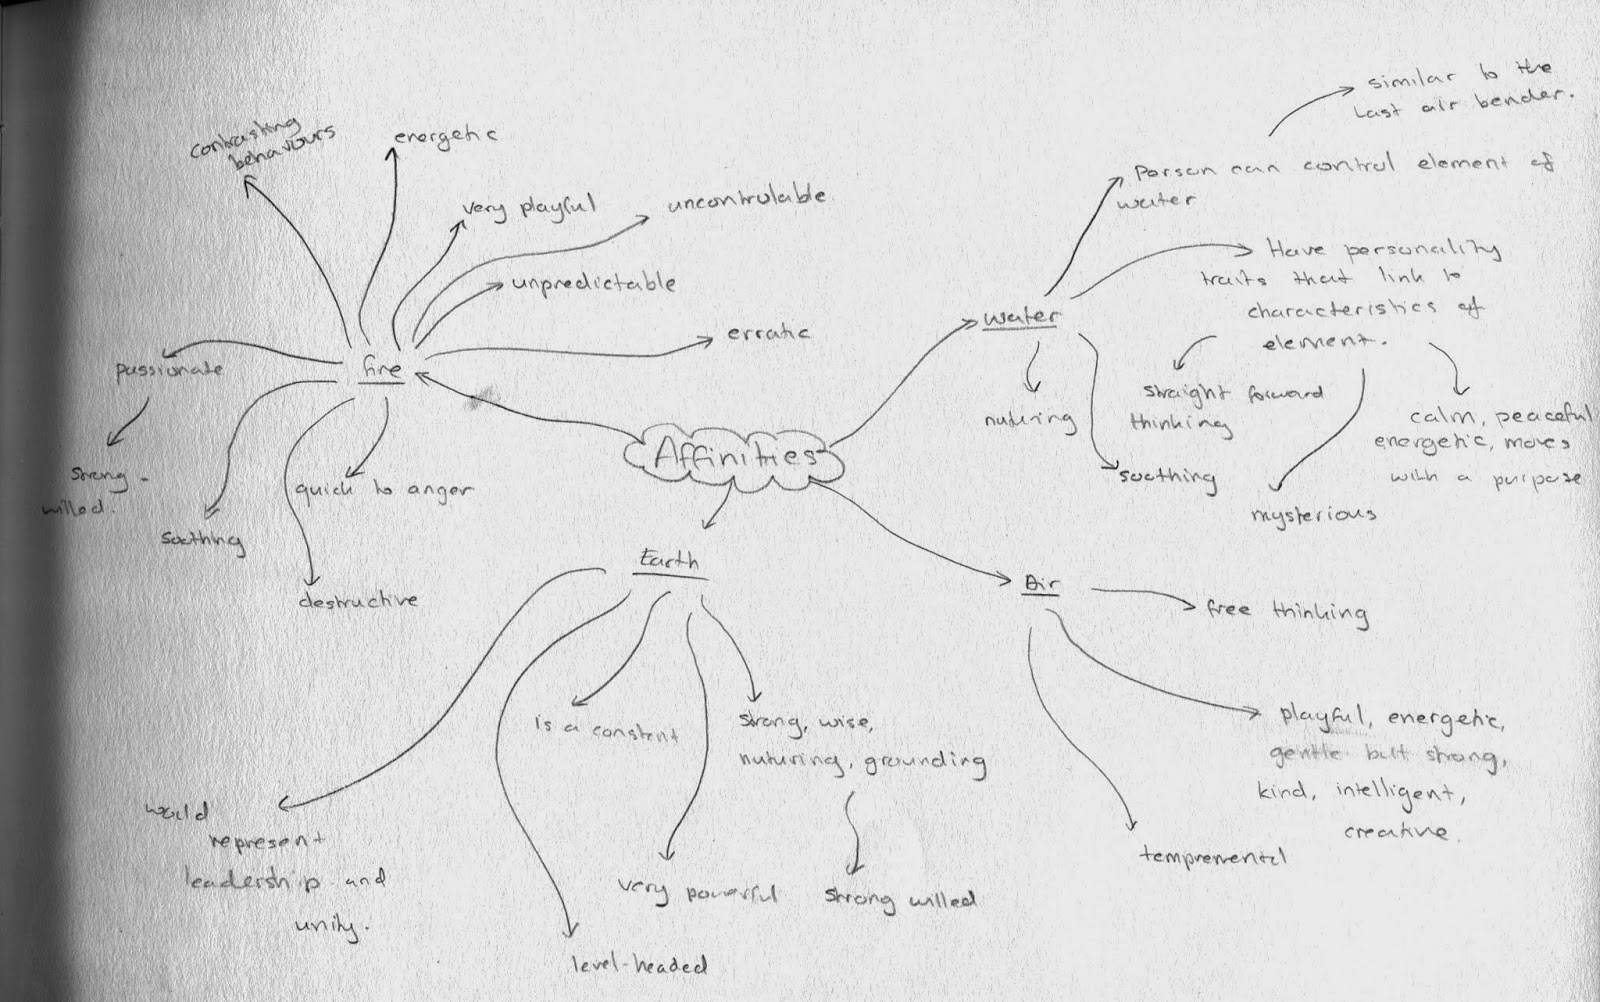 contrasting
behaviours
energetic
very playful
uncontrolable
unpredictable
erratic
fire
passionate
strong-
willed.
soothing
quick to anger
destructive
Affinities
water
similar to the
last air bender.
person can control element of
water
Have personality
traits that link to
characteristics of
element.
nuturing
straight forward
thinking
soothing
mysterious
calm, peaceful
energetic, moves
with a purpose
Earth
would
represent
leadership and
unity.
is a constant
level-headed
very powerful
strong, wise,
nuturing, grounding
strong willed
Air
free thinking
playful, energetic,
gentle but strong,
kind, intelligent,
creative.
tempremental